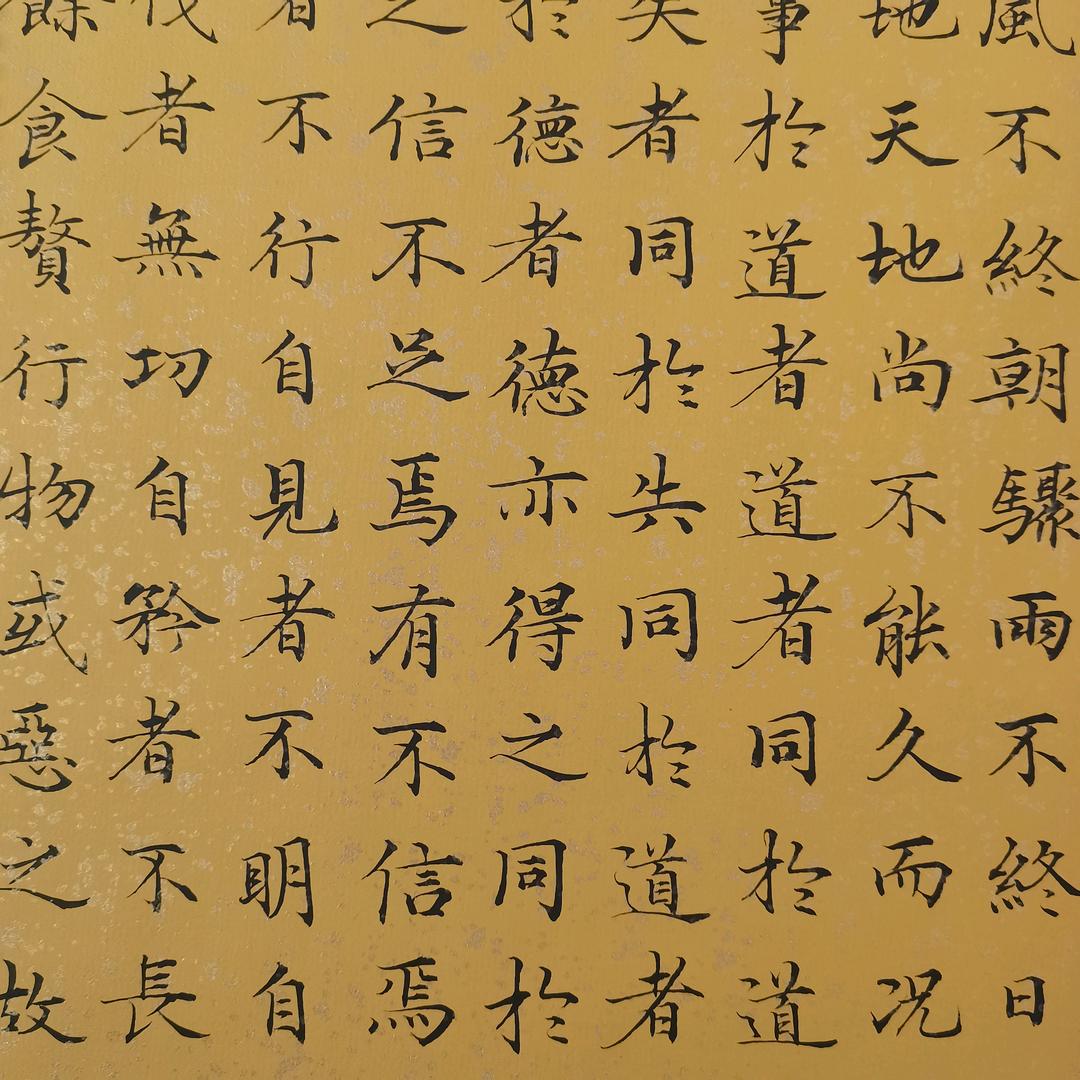 風不終朝驟雨不終日
地天地尚不能久而况
事於道者道者同於道
失者同於失同於道者
於德者德亦得之同於
之信不足焉有不信焉
者不行自見者不明自
伐者無功自矜者不長
餘食贅行物或惡之故